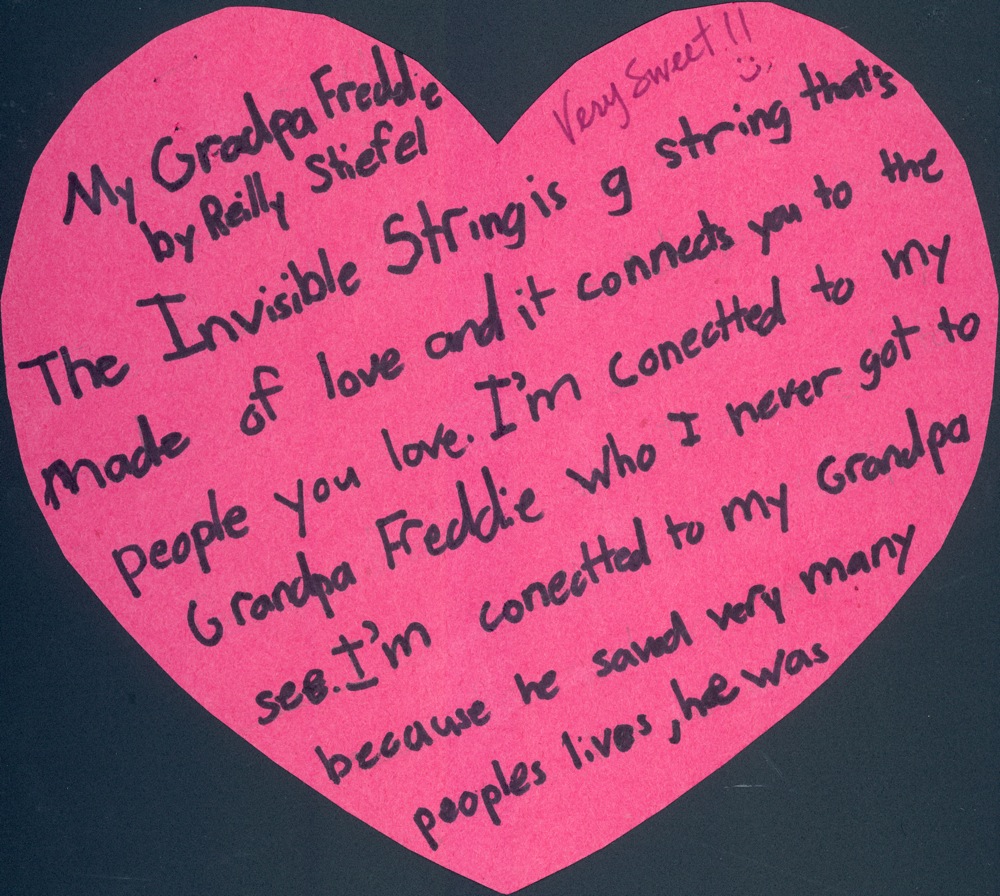 My Gradpa Freddie
by Reilly Stiefel
Very Sweet!!
The Invisible String is a string that's
made of love and it connects you to the
people you love. I'm conectted to my
Grandpa Freddie who I never got to
see. I'm conectted to my Grandpa
because he saved very many
peoples lives, he was